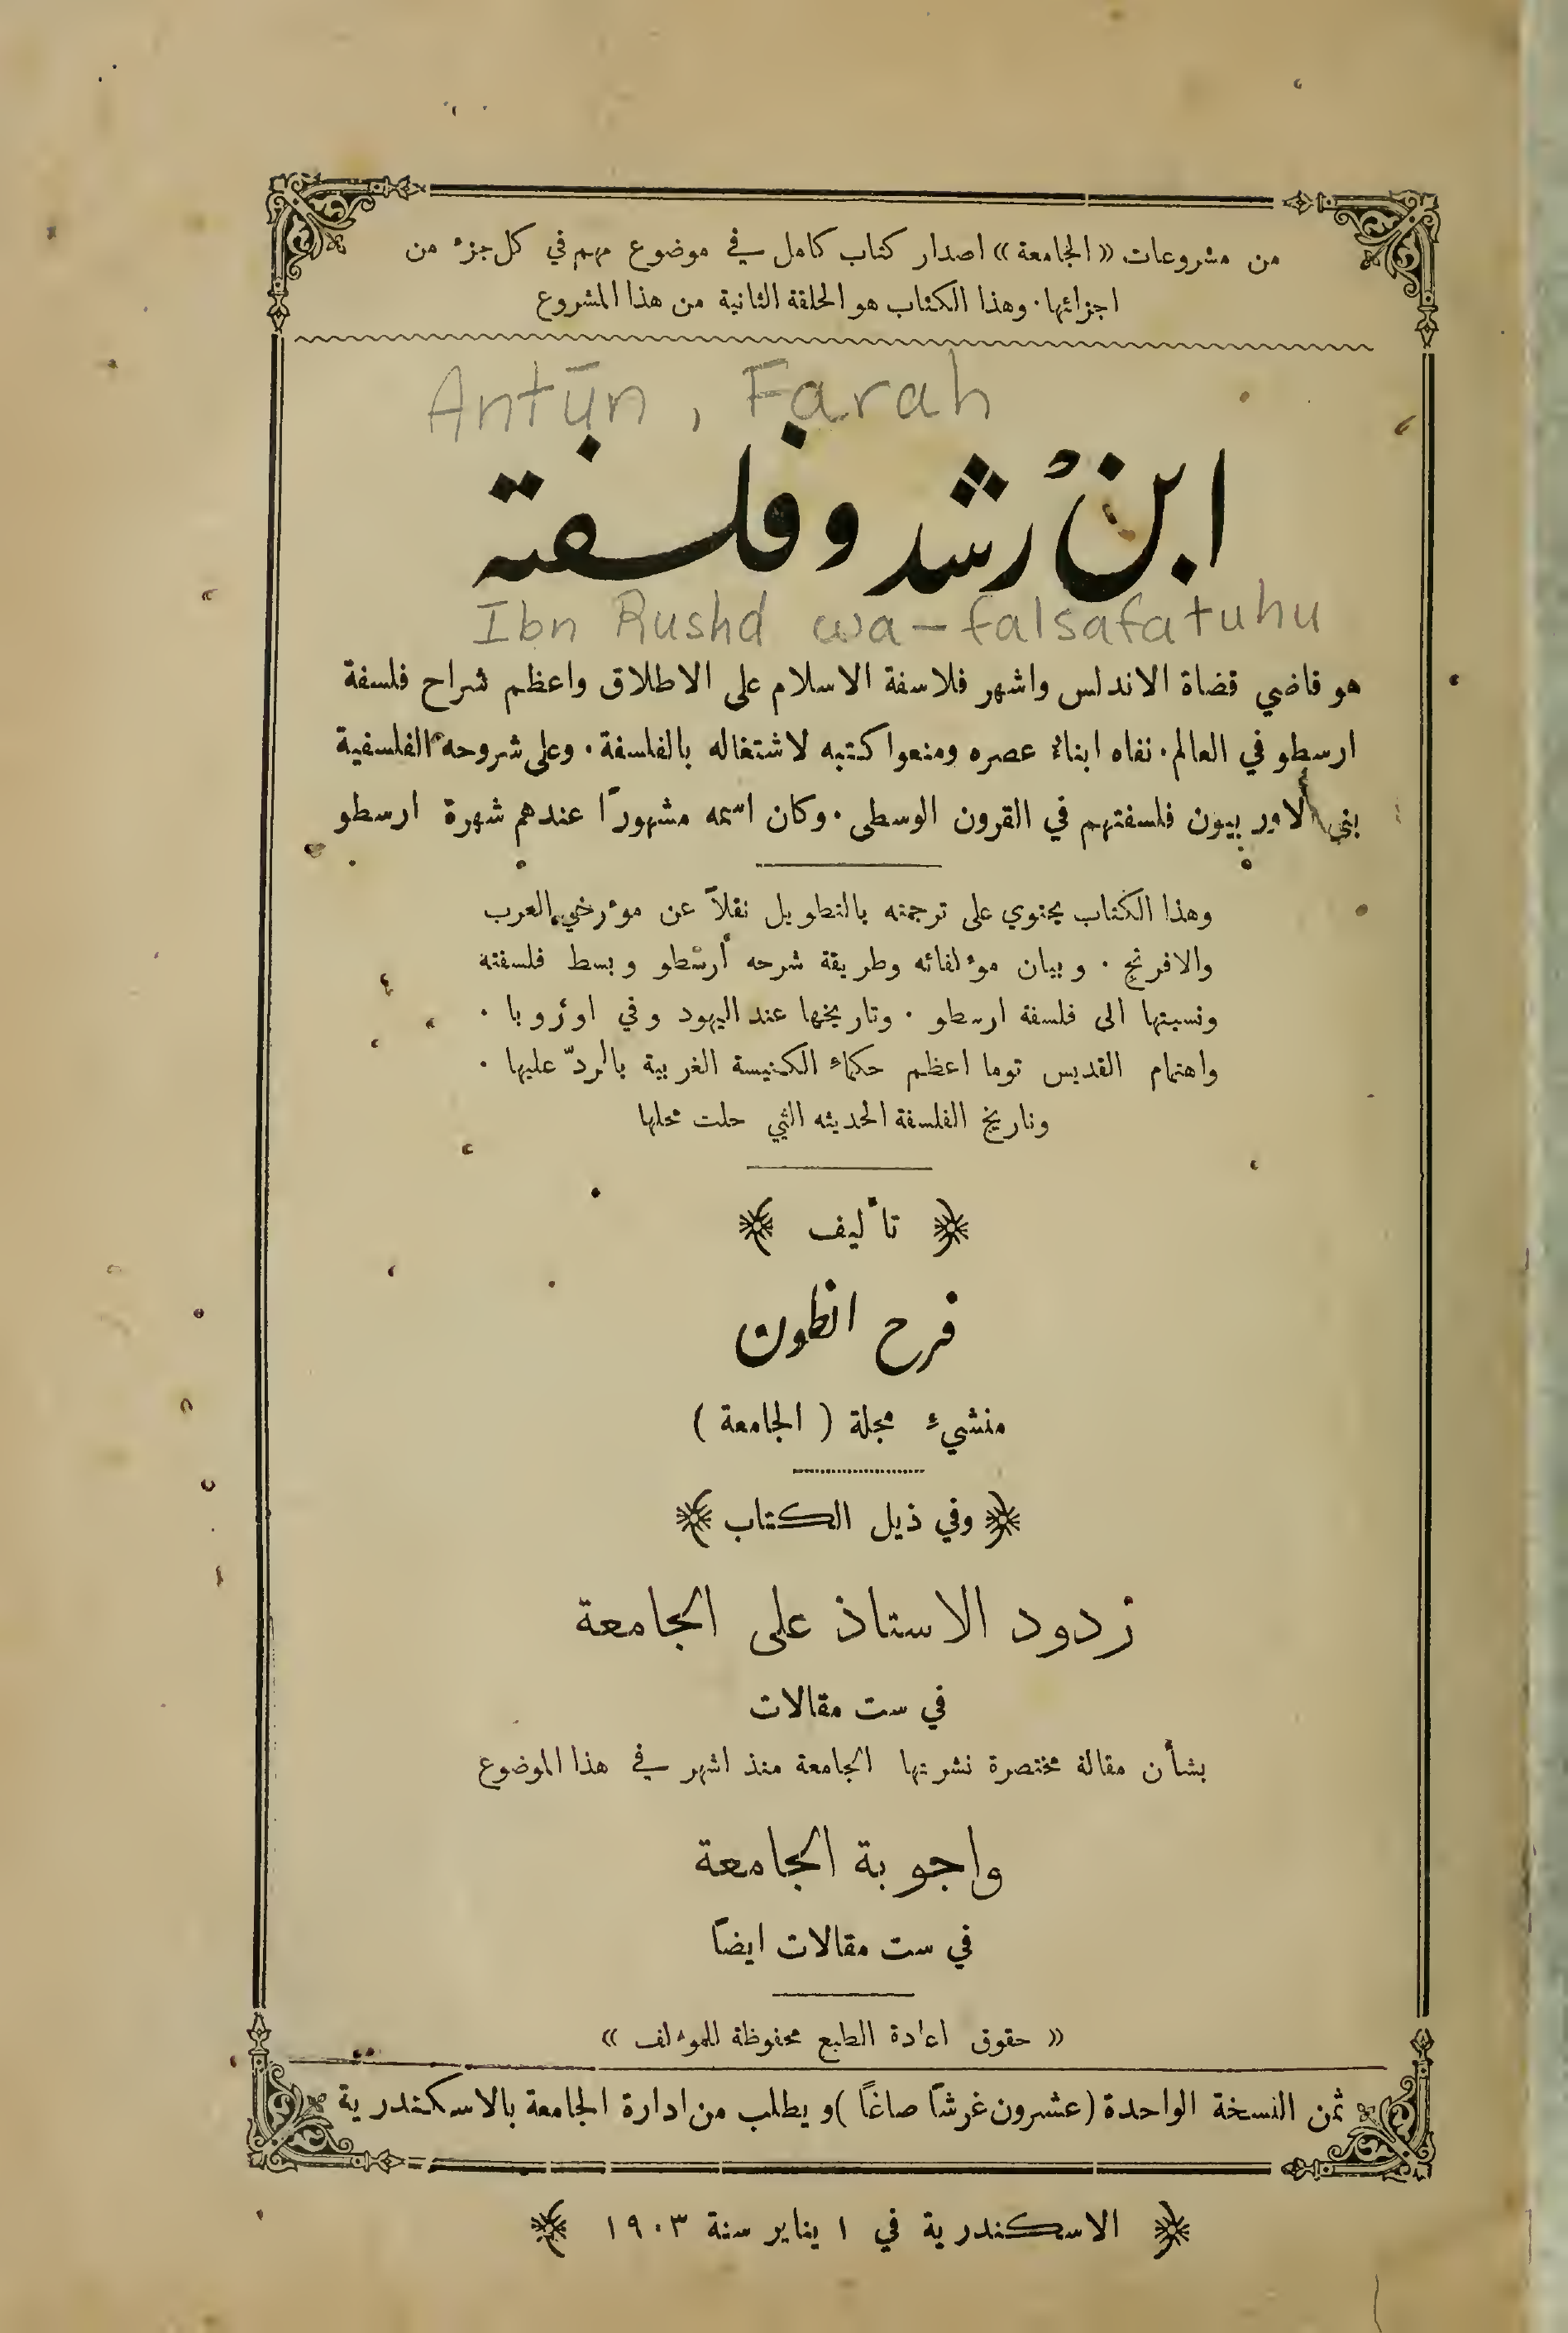 من مشروعات «الجامعة» اصدار كتاب كامل في موضوع مهم في كل جزء من
اجزائها. وهذا الكتاب هو الحلقة الثانية من هذا المشروع
Antūn, Farah
ابن رشد وفلسفته
Ibn Rushd wa-falsafatuhu
هو قاضي قضاة الاندلس واشهر فلاسفة الاسلام على الاطلاق واعظم شراح فلسفة
ارسطو في العالم. نفاه ابناء عصره ومنعوا كتبه لاشتغاله بالفلسفة. وعلى شروحه الفلسفية
بنى الاوربيون فلسفتهم في القرون الوسطى. وكان اسمه مشهورًا عندهم شهرة ارسطو
وهذا الكتاب يحتوي على ترجمته بالتطويل نقلاً عن مؤرخي العرب
والافرنج. وبيان مؤلفاته وطريقة شرحه أرسطو وبسط فلسفته
ونسبتها الى فلسفة ارسطو. وتاريخها عند اليهود وفي اوروبا.
واهتمام القديس توما اعظم حكماء الكنيسة الغربية بالردّ عليها.
وتاريخ الفلسفة الحديثه التي حلت محلها
تأليف
فرح انطون
منشيء مجلة (الجامعة)
وفي ذيل الكتاب
ردود الاستاذ على الجامعة
في ست مقالات
بشأن مقالة مختصرة نشرتها الجامعة منذ اشهر في هذا الموضوع
واجوبة الجامعة
في ست مقالات ايضاً
«حقوق اعادة الطبع محفوظة للمؤلف»
ثمن النسخة الواحدة (عشرون غرشاً صاغاً) ويطلب من ادارة الجامعة بالاسكندرية
الاسكندرية في ١ يناير سنة ١٩٠٣